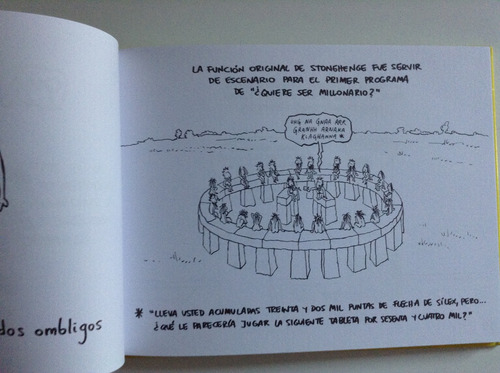 LA FUNCIÓN ORIGINAL DE STONEHENGE FUE SERVIR
DE ESCENARIO PARA EL PRIMER PROGRAMA
DE "¿QUIERE SER MILLONARIO?"
UHG NA GNRA ARR
GRANHU ARNGNA
KLAGHANNA *
* "LLEVA USTED ACUMULADAS TREINTA Y DOS MIL PUNTAS DE FLECHA DE SÍLEX, PERO...
¿QUÉ LE PARECERÍA JUGAR LA SIGUIENTE TABLETA POR SESENTA Y CUATRO MIL?"
dos ombligos